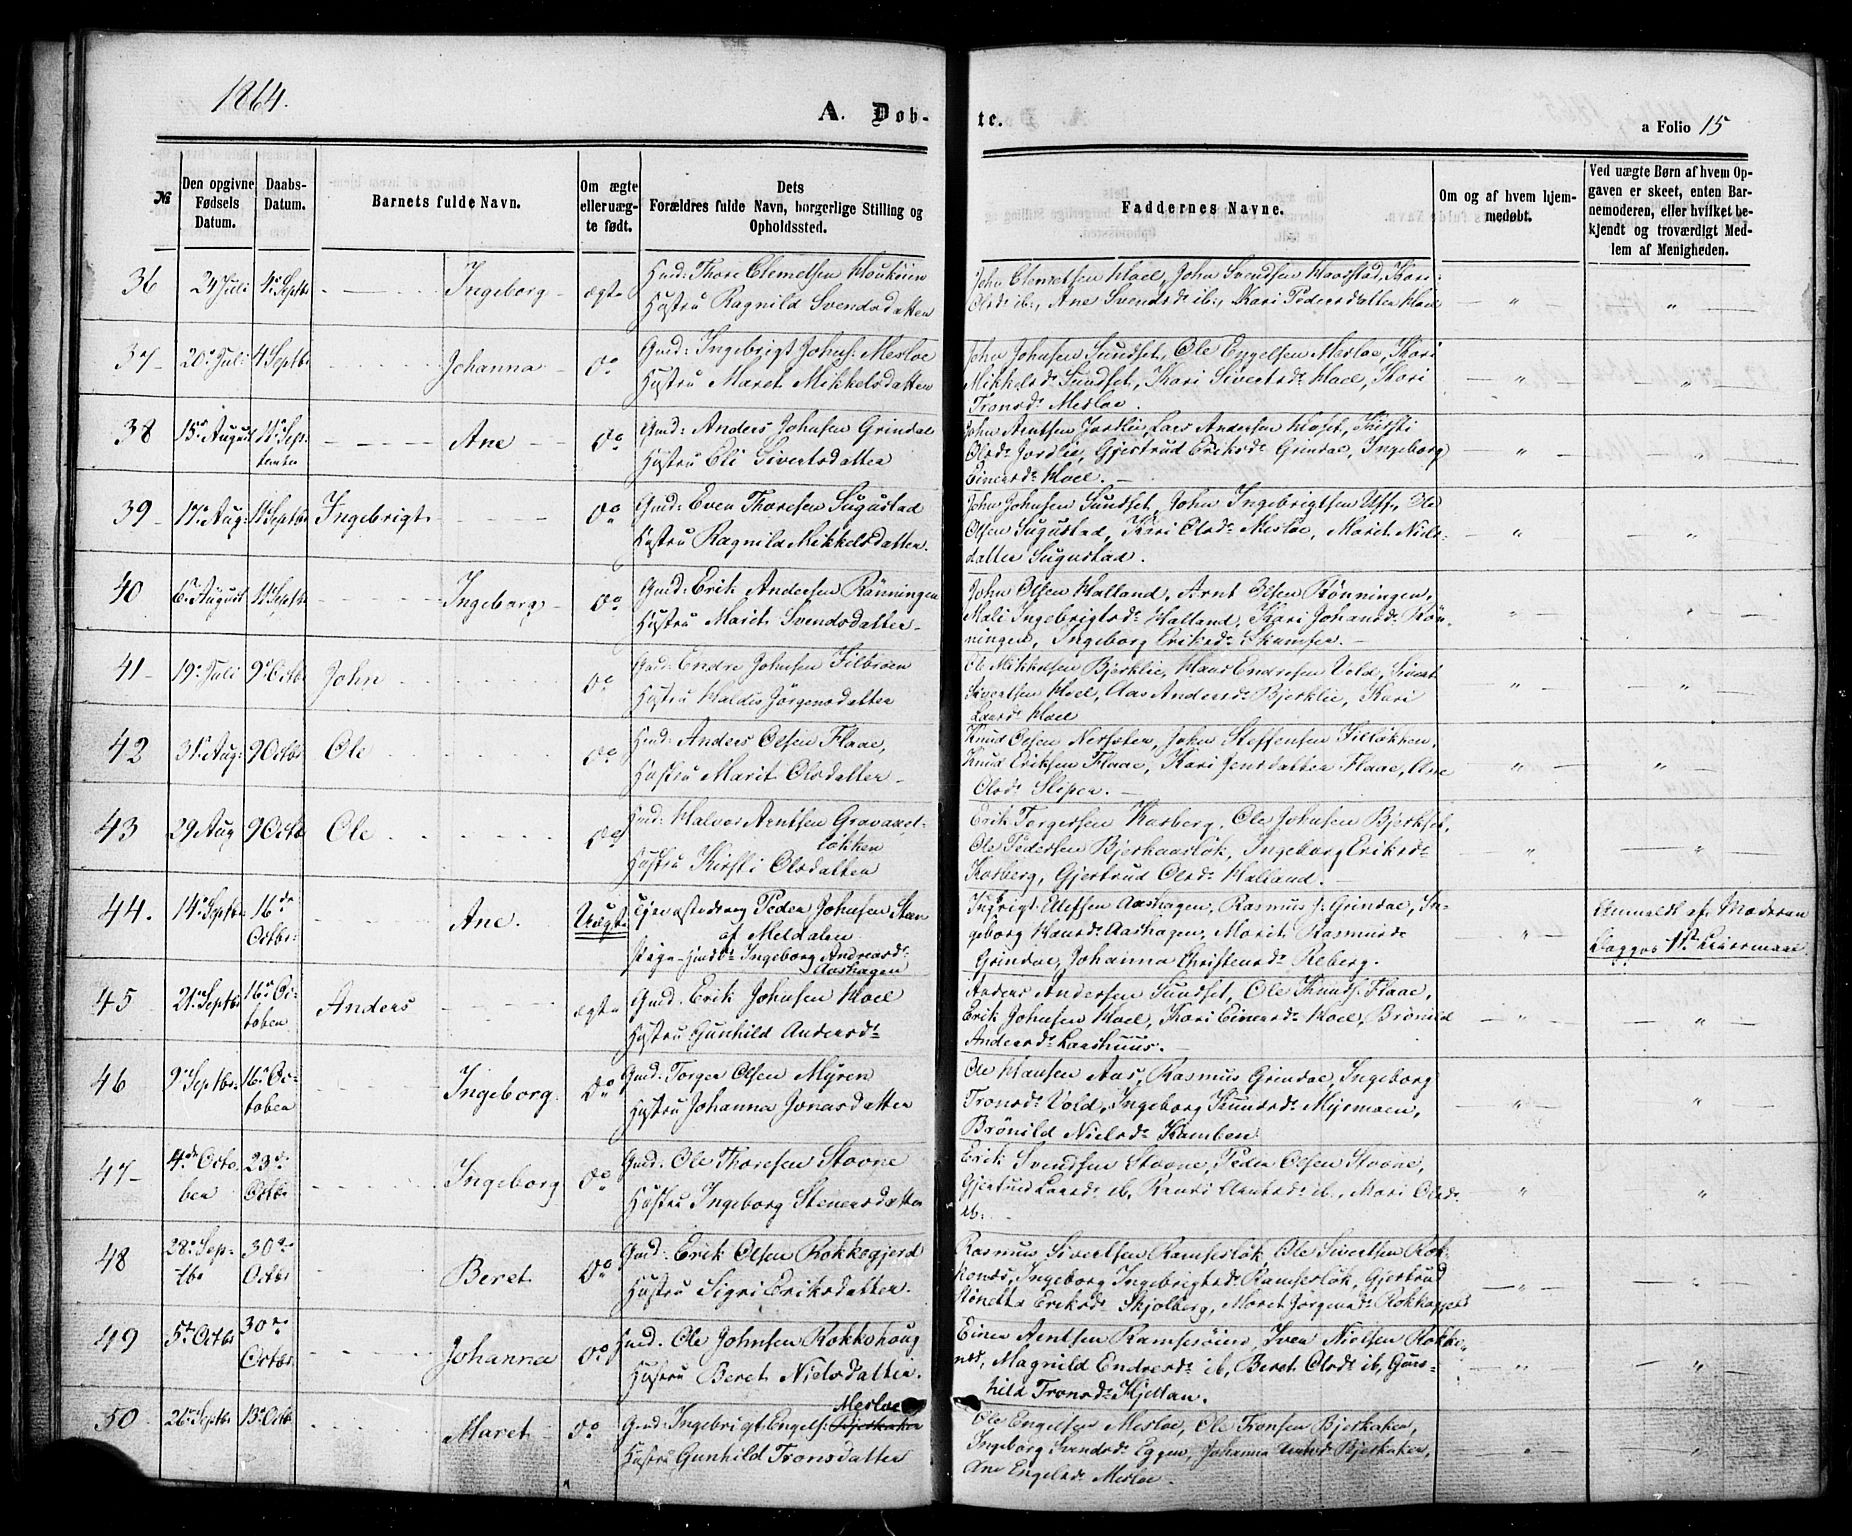 1864.
A. Døb-
te.
a Folio 15
№
Den opgivne Fødsels Datum.
Daabs-Datum.
Barnets fulde Navn.
Om ægte eller uægte født.
Dets
Forældres fulde Navn, borgerlige Stilling og
Opholdssted.
Faddernes Navne.
Om og af hvem hjemmedøbt.
Ved uægte Børn af hvem Op-
gaven er skeet, enten Bar-
nemoderen, eller hvilket be-
kjendt og troværdigt Med-
lem af Menigheden.
36 24 Juli 4de Septbr Ingeborg ægte
Gmd: Thore Clemetsen Houkøien
Hustru Ragnild Svendsdatter
John Clemetsen Hoel, John Svendsen Haarstad, Kari
Olsdr ib., Ane Svendsdr ib., Kari Pedersdatter Hoel
37 20de Juli 4 Septbr Johanna do
Gmd: Ingebrigt Johns: Mesloe
Hustru Maret Mikkelsdatter
John Johnsen Sundset, Ole Engelsen Mesloe, Kari
Mikkelsdr Sundset, Kari Sivertsdr Hoel, Kari
Tronsdr Mesloe.
38 15de August 11te Sep-
tember Ane do
Gmd: Anders Johnsen Grindal
Hustru Eli Sivertsdatter
John Arntsen Jordlie, Lars Andersen Hoset, Kirsti
Olsdr Jordlie, Gjertrud Eriksdr Grindal, Ingeborg
Einersdr Hoel.
39 17de Aug: 11 Septbr Ingebrigt do
Gmd: Even Thoresen Sugustad
Hustru Ragnild Mikkelsdatter.
John Johnsen Sundset, John Ingebrigtsen Uff, Ole
Olsen Sugustad, Kari Olsdr Mesloe, Marit Niels-
datter Sugustad.
40 6te August 11 Septbr Ingeborg do
Gmd: Erik Andersen Rönningen
Hustru Marit Svendsdatter
John Olsen Halland, Arnt Olsen Rönningen,
Mali Ingebrigtsdr Halland, Kari Johansdr Rön-
ningen, Ingeborg Eriksdr Skamfer.
41 19de Juli 9de Octbr John do
Gmd: Endre Johnsen Filbroen
Hustru Haldis Jörgensdatter
Ole Mikkelsen Bjerklie, Hans Endresen Vold, Sivert
Sivertsen Hoel, Aas Andersdr Bjerklie, Kari
Larsdr Hoel
42 31te Aug: 9 Octbr Ole do
Gmd: Anders Olsen Flaae,
Hustru Marit Olsdatter
Knud Olsen Nersæter, John Steffensen Filløkken,
Knud Eriksen Flaae, Kari Jensdatter Flaae, Ane
Olsdr Sliper.
43 29 Aug 9 Octbr Ole do
Gmd: Halvor Arntsen Gravaset-
løkken
Hustru Kirsti Olsdatter
Erik Torgersen Kosberg, Ole Johnsen Bjerkset,
Ole Pedersen Bjerkaasløk, Ingeborg Eriksdr
Kosberg, Gjertrud Olsdr Halland.
44. 14de Septbr 16de
Octbr Ane. Uægte
Tjenestedreng Peder Johnsen Steen
af Meldalen
Pige Ingeborg Andreasdr
Aashagen
Ingbrigt Ellefsen Aashagen, Rasmus J. Grindal, In-
geborg Hansdr Aashagen, Marit Rasmusdr
Grindal, Johanna Christensdr Reberg.
Anmeldt af Moderen
Begges 1ste Leiermaal
45 21de Septbr 16de Oc-
tober Anders ægte
Gmd: Erik Johnsen Hoel
Hustru Gunhild Andersdr
Anders Andersen Sundset, Ole Knuds: Flaae,
Erik Johnsen Hoel, Kari Einersdr Hoel, Brönild
Andersdr Laashuus.
46 9de Septbr 16de Oc-
tober Ingeborg do
Gmd: Torger Olsen Myren
Hustru Johanna Jonasdatter
Ole Hansen Aas, Rasmus Grindal, Ingeborg
Tronsdr Vold, Ingeborg Knudsdr Myrmoen,
Brönild Nielsdr Kamben
47 4de Octo
ber 23de
Octbr Ingeborg do
Gmd: Ole Thoresen Stovne
Hustru Ingeborg Stenersdatter
Erik Svendsen Stovne, Peder Olsen Stovne,
Gjertrud Larsdr ib, Randi Arntsdr ib., Mari Olsdr
ib.
48 28de Sep-
tbr 30te
Octbr Beret do
Gmd: Erik Olsen Rokkogjerd
Hustru Sigri Eriksdatter.
Rasmus Sivertsen Ramsesløk, Ole Sivertsen Rok-
kones, Ingeborg Ingebrigtsdr Ramsesløk, Gjertrud
Eriksdr Skjolberg, Maret Jörgensdr Rokkogjerd
49 5te Octbr 30te
Octbr Johanna do
Gmd: Ole Johnsen Rokkohoug
Hustru Beret Nielsdatter.
Einer Arntsen Ramsesøien, Iver Nielsen Rokko-
nes, Magnild Endresdr ib, Beret Olsdr ib, Gun-
hild Tronsdr Kjellan.
50 26de Septbr 13de Octbr Maret do
Mesloe
Gmd: Ingebrigt Engels: Bjerkaker
Hustru Gunhild Tronsdatter
Ole Engelsen Mesloe, Ole Tronsen Bjerkaker,
Ingeborg Svendsdr Eggen, Johanna Bjerkaker,
Ane Engelsdr Mesloe.